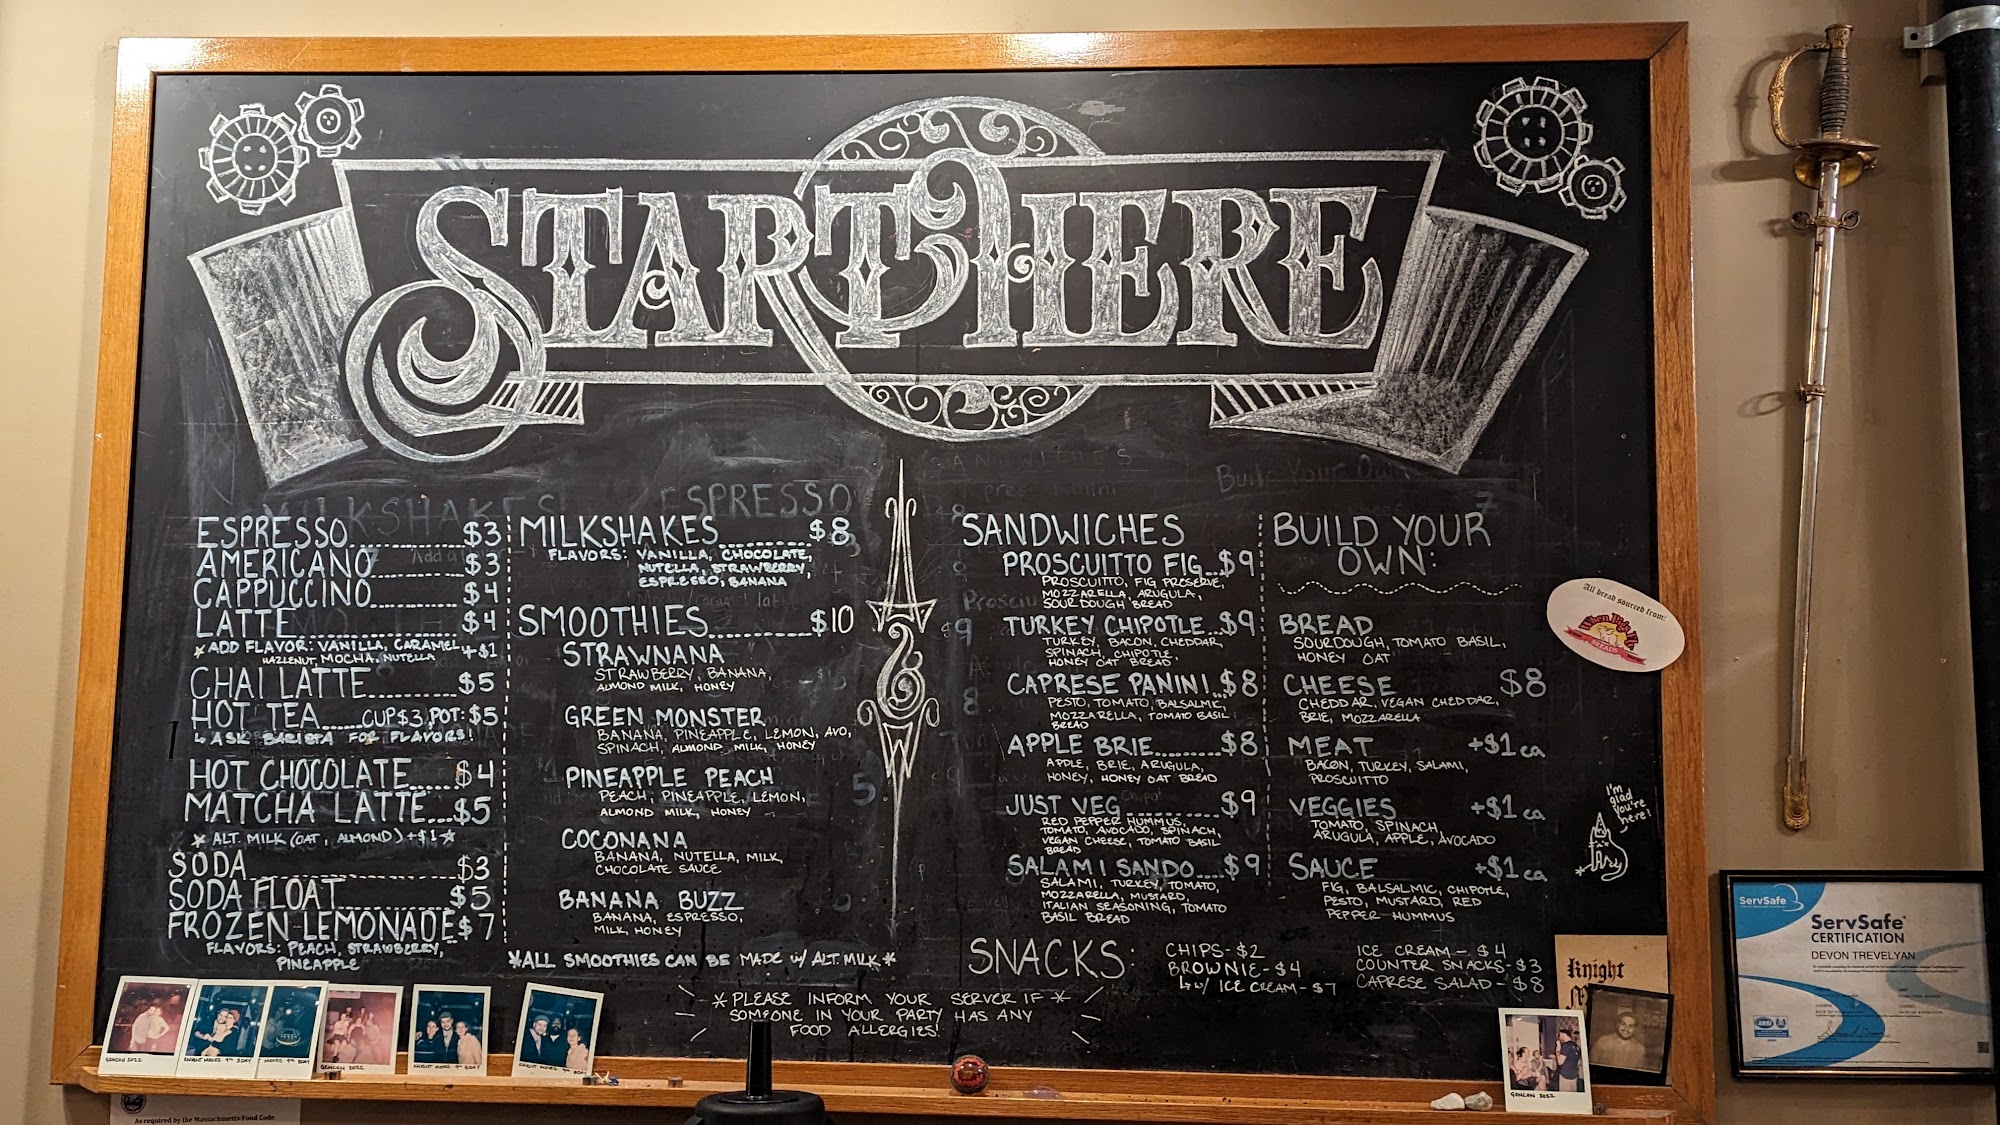 START HERE
ESPRESSO $3
AMERICANO $3
CAPPUCCINO $4
LATTE $4
*ADD FLAVOR: VANILLA, CARAMEL, +$1
HAZLENUT, MOCHA, NUTELLA
CHAI LATTE $5
HOT TEA CUP $3, POT: $5
↳ ASK BARISTA FOR FLAVORS!
HOT CHOCOLATE $4
MATCHA LATTE $5
* ALT. MILK (OAT, ALMOND) +$1 *
SODA $3
SODA FLOAT $5
FROZEN LEMONADE $7
FLAVORS: PEACH, STRAWBERRY,
PINEAPPLE
MILKSHAKES $8
FLAVORS: VANILLA, CHOCOLATE,
NUTELLA, STRAWBERRY,
ESPRESSO, BANANA
SMOOTHIES $10
STRAWNANA
STRAWBERRY, BANANA,
ALMOND MILK, HONEY
GREEN MONSTER
BANANA, PINEAPPLE, LEMON, AVO,
SPINACH, ALMOND MILK, HONEY
PINEAPPLE PEACH
PEACH, PINEAPPLE, LEMON,
ALMOND MILK, HONEY
COCONANA
BANANA, NUTELLA, MILK,
CHOCOLATE SAUCE
BANANA BUZZ
BANANA, ESPRESSO,
MILK, HONEY
*ALL SMOOTHIES CAN BE MADE w/ ALT. MILK*
SANDWICHES
PROSCUITTO FIG $9
PROSCUITTO, FIG PRESERVE,
MOZZARELLA, ARUGULA,
SOURDOUGH BREAD
TURKEY CHIPOTLE $9
TURKEY, BACON, CHEDDAR,
SPINACH, CHIPOTLE,
HONEY OAT BREAD
CAPRESE PANINI $8
PESTO, TOMATO, BALSALMIC,
MOZZARELLA, TOMATO BASIL
BREAD
APPLE BRIE $8
APPLE, BRIE, ARUGULA,
HONEY, HONEY OAT BREAD
JUST VEG $9
RED PEPPER HUMMUS,
TOMATO, AVOCADO, SPINACH,
VEGAN CHEESE, TOMATO BASIL
BREAD
SALAMI SANDO $9
SALAMI, TURKEY, TOMATO,
MOZZARELLA, MUSTARD,
ITALIAN SEASONING, TOMATO
BASIL BREAD
BUILD YOUR
OWN:
BREAD
SOURDOUGH, TOMATO BASIL,
HONEY OAT
CHEESE $8
CHEDDAR, VEGAN CHEDDAR,
BRIE, MOZZARELLA
MEAT +$1 ea
BACON, TURKEY, SALAMI,
PROSCUITTO
VEGGIES +$1 ea
TOMATO, SPINACH,
ARUGULA, APPLE, AVOCADO
SAUCE +$1 ea
FIG, BALSALMIC, CHIPOTLE,
PESTO, MUSTARD, RED
PEPPER HUMMUS
SNACKS:
CHIPS - $2
BROWNIE - $4
↳ w/ ICE CREAM - $7
ICE CREAM - $4
COUNTER SNACKS - $3
CAPRESE SALAD - $8
* PLEASE INFORM YOUR SERVER IF *
SOMEONE IN YOUR PARTY HAS ANY
FOOD ALLERGIES!
All bread sourced from:
When Pigs Fly
BREADS
I'm
glad
you're
here!
Knight
GENCON 2022
KNIGHT MOVES 9th BDAY
MOVES 9th BDAY
GENCON 2022
KNIGHT MOVES 9th BDAY
KNIGHT MOVES 9th BDAY
GENCON 2022
ServSafe
ServSafe
CERTIFICATION
DEVON TREVELYAN
As required by the Massachusetts Food Code